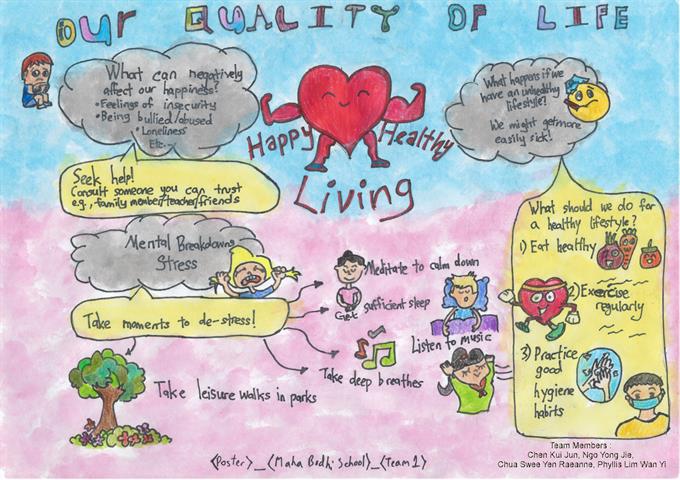 OUR QUALITY OF LIFE
What can negatively
affect our happiness?
•Feelings of insecurity
•Being bullied/abused
•Loneliness
Etc...
Seek help!
Consult someone you can trust
e.g., family member/teacher/friends
Happy Healthy
Living
What happens if we
have an unhealthy
lifestyle?
We might get more
easily sick!
What should we do for
a healthy lifestyle?
1) Eat healthy
2) Exercise
regularly
3) Practice
good
hygiene
habits
Mental Breakdowns
Stress
Take moments to de-stress!
Meditate to calm down
Get sufficient sleep
Listen to music
Take deep breathes
Take leisure walks in parks
<Poster>_<Maha Bodhi School>_<Team 1>
Team Members :
Chen Kui Jun, Ngo Yong Jie,
Chua Swee Yen Raeanne, Phyllis Lim Wan Yi